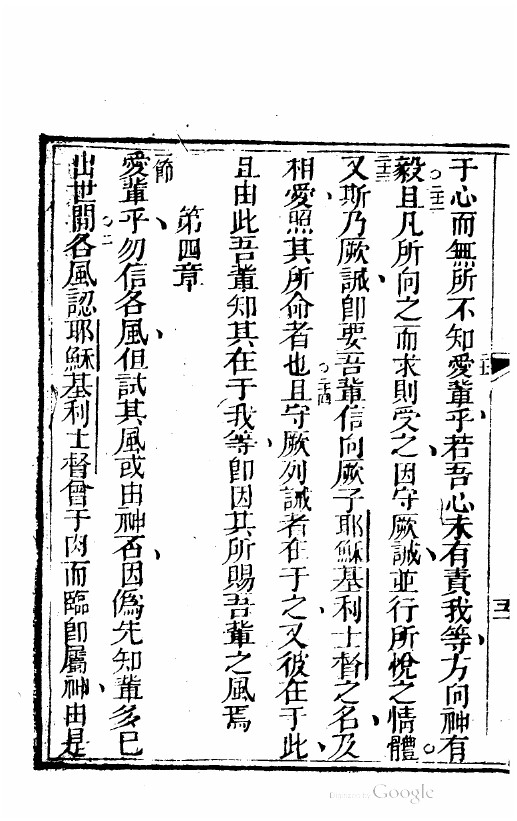 于心而無所不知愛輩乎若吾心未有責我等方向神有
毅且凡所向之而求則受之因守厥誡並行所悅之情體
又斯乃厥誡卽要吾輩信向厥子耶穌基利士督之名及
相愛照其所命者也且守厥列誡者在于之又彼在于此
且由此吾輩知其在于我等卽因其所賜吾輩之風焉
第四章
愛輩乎勿信各風但試其風或由神否因僞先知輩多已
出世間各風認耶穌基利士督曾于肉而臨卽屬神由是
五
Google